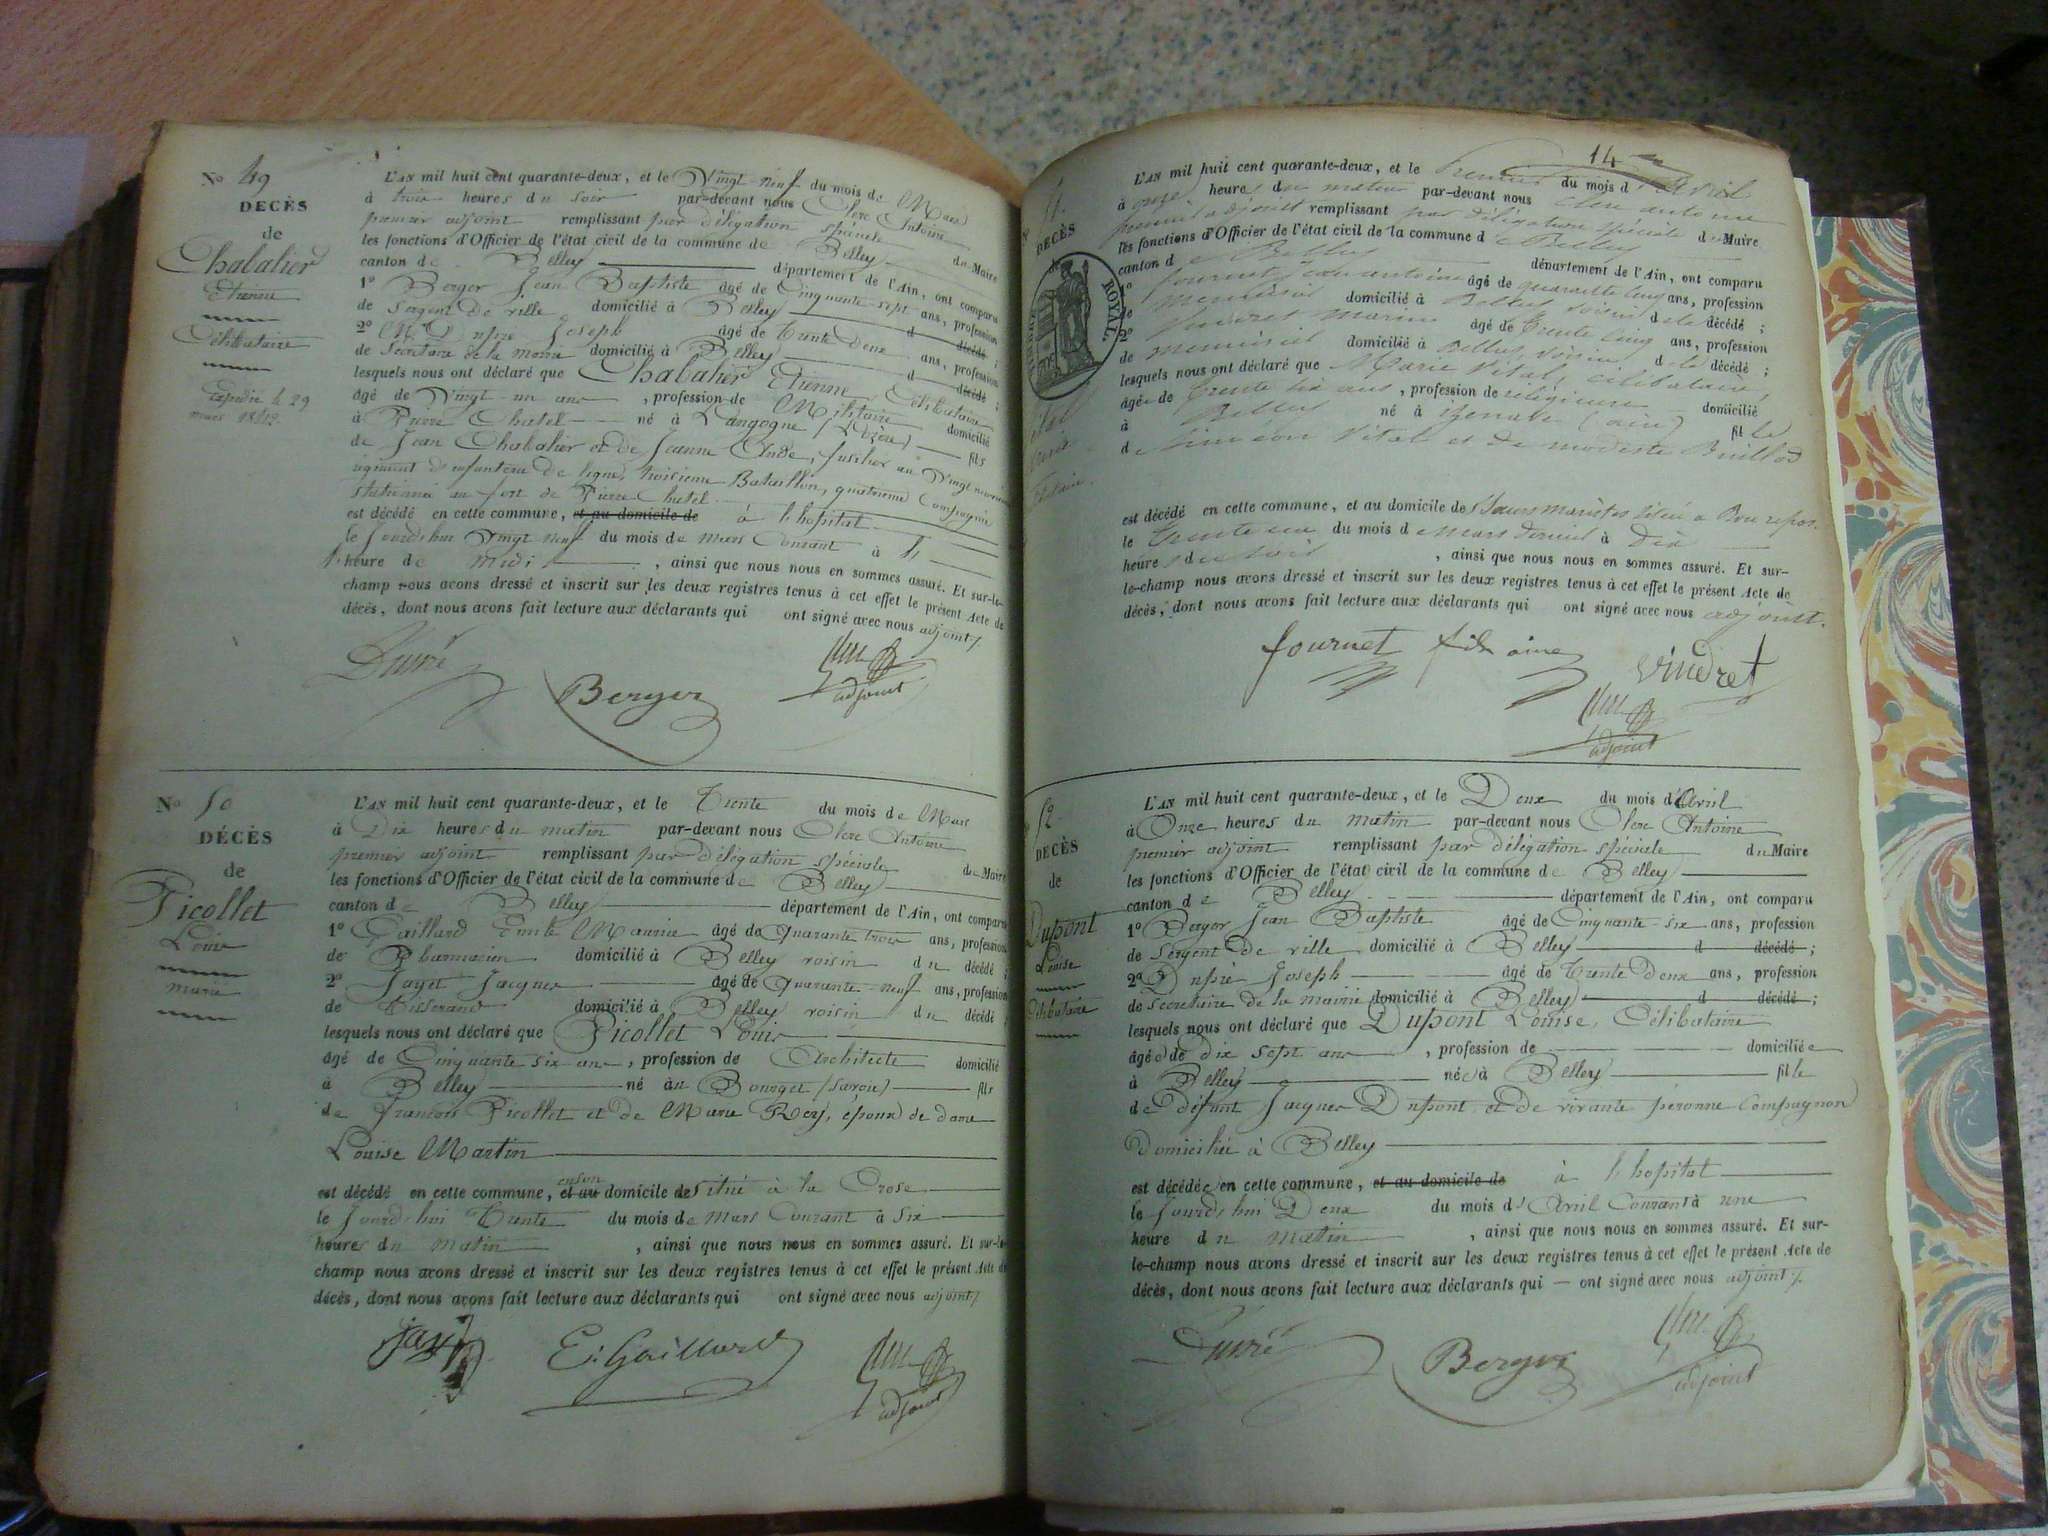 No 49
DECÈS
de
Chabalier
Etienne
Célibataire
Expédié le 29
mars 1842
L'AN mil huit cent quarante-deux, et le Vingt-neuf du mois de Mars
à trois heures du soir par-devant nous Clerc Antoine
premier adjoint remplissant par délégation spéciale du Maire
les fonctions d'Officier de l'état civil de la commune de Belley
canton de Belley département de l'Ain, ont comparu
1o Berger Jean Baptiste âgé de Cinquante-sept ans, profession
de Sergent de ville domicilié à Belley d décédé ;
2o Joseph âgé de trente deux ans, profession
de Secrétaire de la mairie domicilié à Belley d décédé ;
lesquels nous ont déclaré que Chabalier Etienne, Célibataire
âgé de Vingt-un ans, profession de Militaire domicilié
à Pierre Chatel né à Langogne (Lozère) fils
de Jean Chabalier et de Jeanne Aude, fusilier au Vingt neuvième
régiment d'infanterie de ligne, troisième Bataillon, quatrième Compagnie
stationné au fort de Pierre Chatel.
est décédé en cette commune, et au domicile de à l'hopital
le Jourd'hui Vingt neuf du mois de mars Courant à
heure de midi, ainsi que nous nous en sommes assuré. Et sur-le-
champ nous avons dressé et inscrit sur les deux registres tenus à cet effet le présent Acte de
décès, dont nous avons fait lecture aux déclarants qui ont signé avec nous adjoint
Berger
adjoint
No 50
DÉCÈS
de
Picollet
Louis
marié
L'AN mil huit cent quarante-deux, et le Trente du mois de Mars
à Dix heures du matin par-devant nous Clerc Antoine
premier adjoint remplissant par délégation spéciale du Maire
les fonctions d'Officier de l'état civil de la commune de Belley
canton de Belley département de l'Ain, ont comparu
1o Gaillard Emile Maurice âgé de quarante trois ans, profession
de Pharmacien domicilié à Belley voisin du décédé ;
2o Jayet Jacques âgé de Quarante-neuf ans, profession
de Tisserand domicilié à Belley voisin du décédé ;
lesquels nous ont déclaré que Picollet Louis
âgé de Cinquante six ans, profession de Architecte domicilié
à Belley né au Bourget (Savoie) fils
de francois Picollet et de Marie Rey, époux de dame
Louise Martin
est décédé en cette commune, et au en son domicile de situé à la Crose
le Jourd'hui Trente du mois de Mars Courant à six
heures du matin, ainsi que nous nous en sommes assuré. Et sur-le-
champ nous avons dressé et inscrit sur les deux registres tenus à cet effet le présent Acte de
décès, dont nous avons fait lecture aux déclarants qui ont signé avec nous adjoint
E. Gaillard
adjoint
14
51.
DECÈS
ROYAL
L'AN mil huit cent quarante-deux, et le Premier du mois d'avril
à onze heures du matin par-devant nous clerc antoine
premier adjoint remplissant par délégation spéciale du Maire
les fonctions d'Officier de l'état civil de la commune de Belley
canton de Belley département de l'Ain, ont comparu
1o fournet jean antoine âgé de quarante cinq ans, profession
de menuisier domicilié à Belley voisin de la décédé ;
2o Vindret Marin âgé de trente cinq ans, profession
de menuisier domicilié à Belley, voisin de la décédé ;
lesquels nous ont déclaré que Marie Vital, célibataire
âgée de trente six ans, profession de religieuse domicilié
à Belley né à izenave (ain) fille
de Siméon Vital et de modeste
est décédé en cette commune, et au domicile de Sœurs maristes située à Bon repos
le trente un du mois de mars dernier à Dix
heures du soir, ainsi que nous nous en sommes assuré. Et sur-
le-champ nous avons dressé et inscrit sur les deux registres tenus à cet effet le présent Acte de
décès, dont nous avons fait lecture aux déclarants qui ont signé avec nous adjoint.
fournet fils ainé
Vindret
adjoint
52
DECÈS
de
Dupont
Louise
Célibataire
L'AN mil huit cent quarante-deux, et le Deux du mois d'Avril
à Onze heures du matin par-devant nous Clerc Antoine
premier adjoint remplissant par délégation spéciale du Maire
les fonctions d'Officier de l'état civil de la commune de Belley
canton de Belley département de l'Ain, ont comparu
1o Berger Jean Baptiste âgé de Cinquante-six ans, profession
de Sergent de ville domicilié à Belley d décédé ;
2o Joseph âgé de Trente Deux ans, profession
de Secrétaire de la mairie domicilié à Belley d décédé ;
lesquels nous ont déclaré que Dupont Louise, Célibataire
âgée de dix sept ans, profession de domiciliée
à Belley née à Belley fille
de défunt Jacques Dupont et de vivante péronne Compagnon
domiciliée à Belley
est décédée en cette commune, et au domicile de à l'hopital
le Jourd'hui Deux du mois d'Avril Courant à une
heure du matin, ainsi que nous nous en sommes assuré. Et sur-
le-champ nous avons dressé et inscrit sur les deux registres tenus à cet effet le présent Acte de
décès, dont nous avons fait lecture aux déclarants qui — ont signé avec nous adjoint
Berger
adjoint